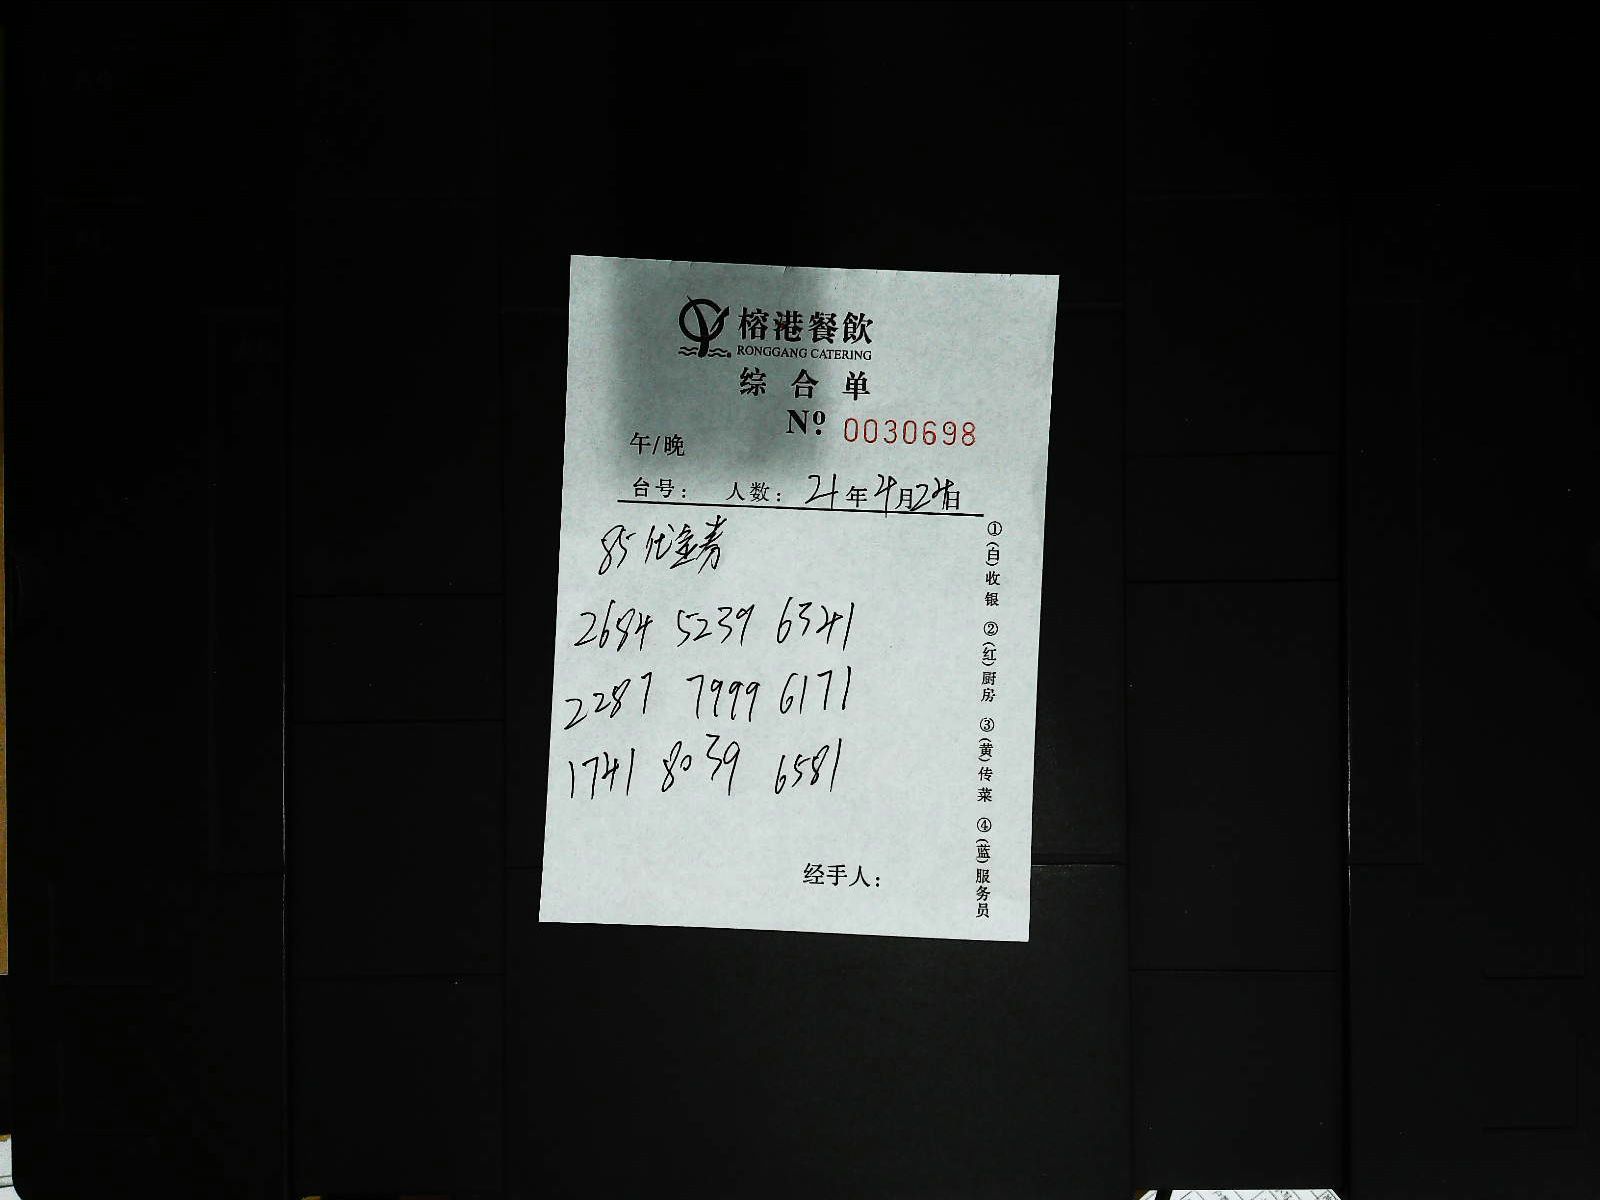 榕港餐飲
RONGGANG CATERING
综合单
Nº 0030698
午/晚
台号： 人数： 21年4月24日
85代金券
2684 5239 6341
2287 7999 6171
1741 8039 6581
经手人：
①(白)收银 ②(红)厨房 ③(黄)传菜 ④(蓝)服务员